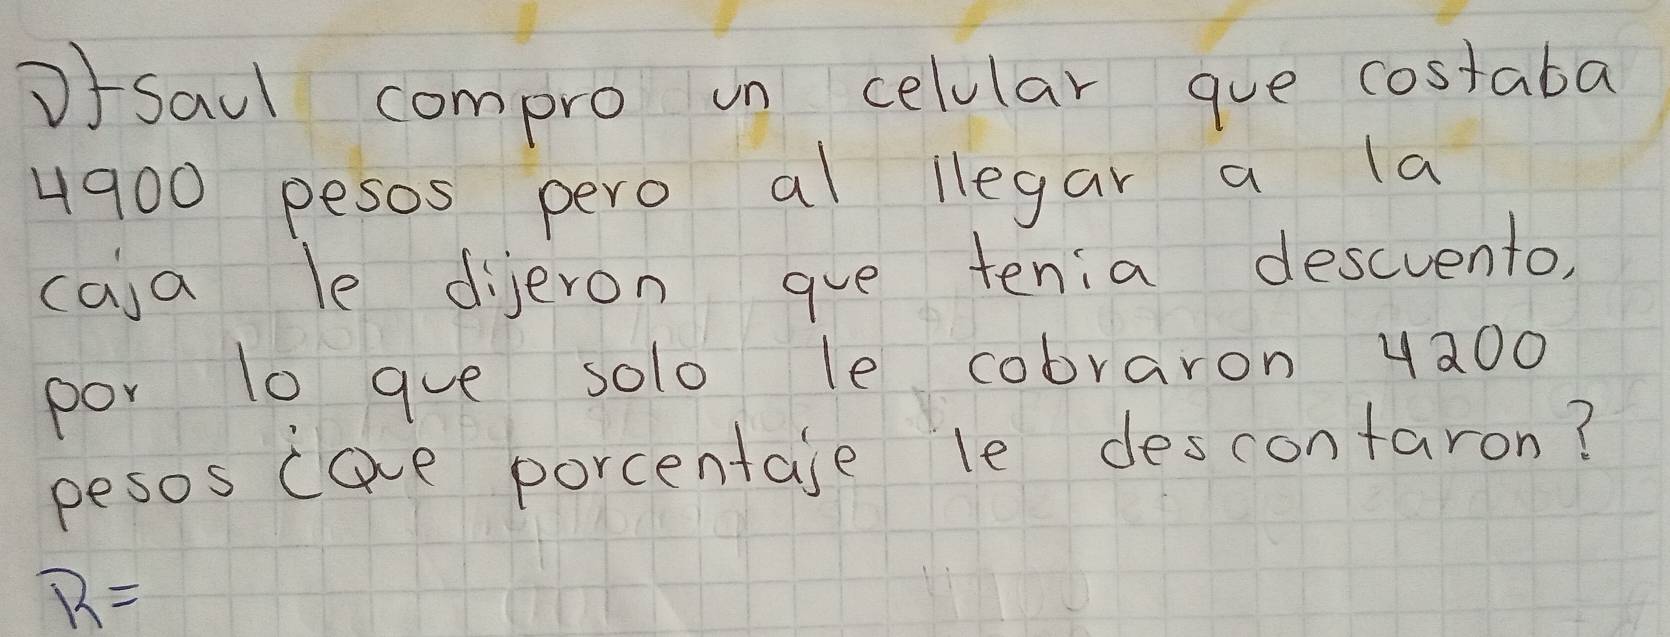 D)-Saul compro un celular que costaba
4900 pesos pero al llegar a la
caja le dijeron que tenia descuento,
por lo que solo le cobraron 4200
pesos ¿Que porcentaje le descontaron?
R=